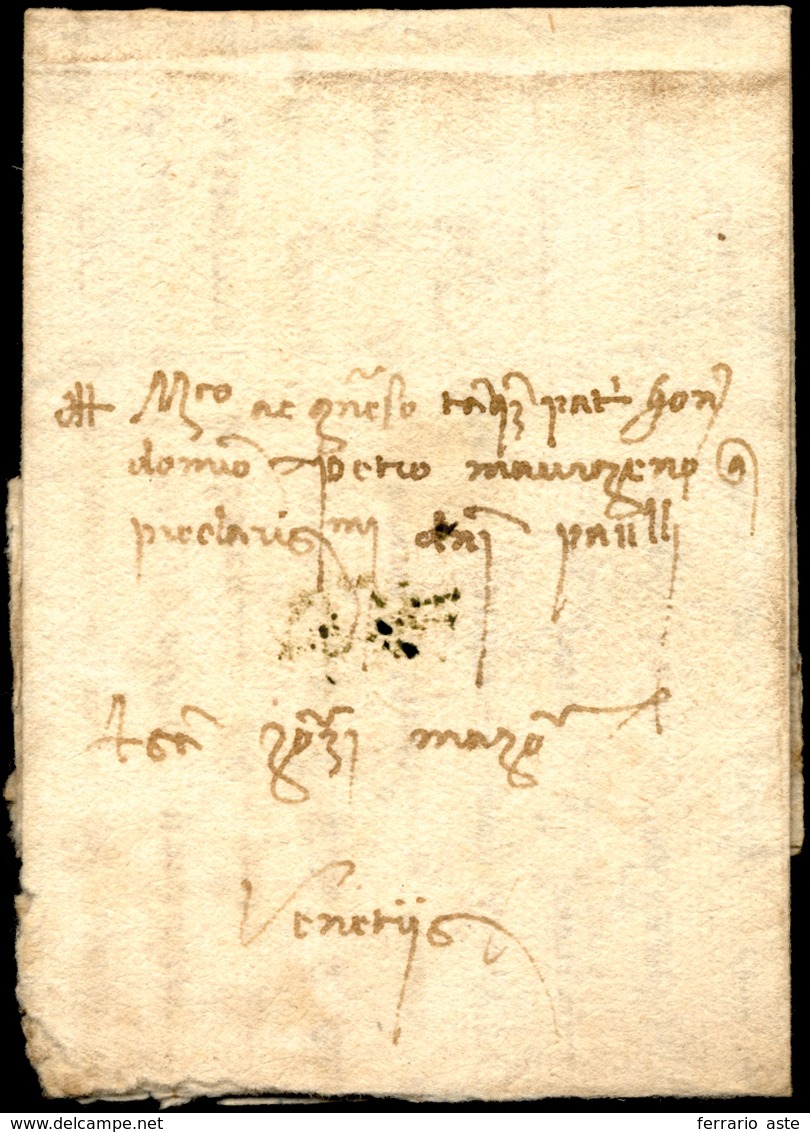 Mco ac gneso tanqz pat' hon
domino petro maurozeno q
preclarissimi dni paulli
Venetijs
delcampe.net
ferrario aste